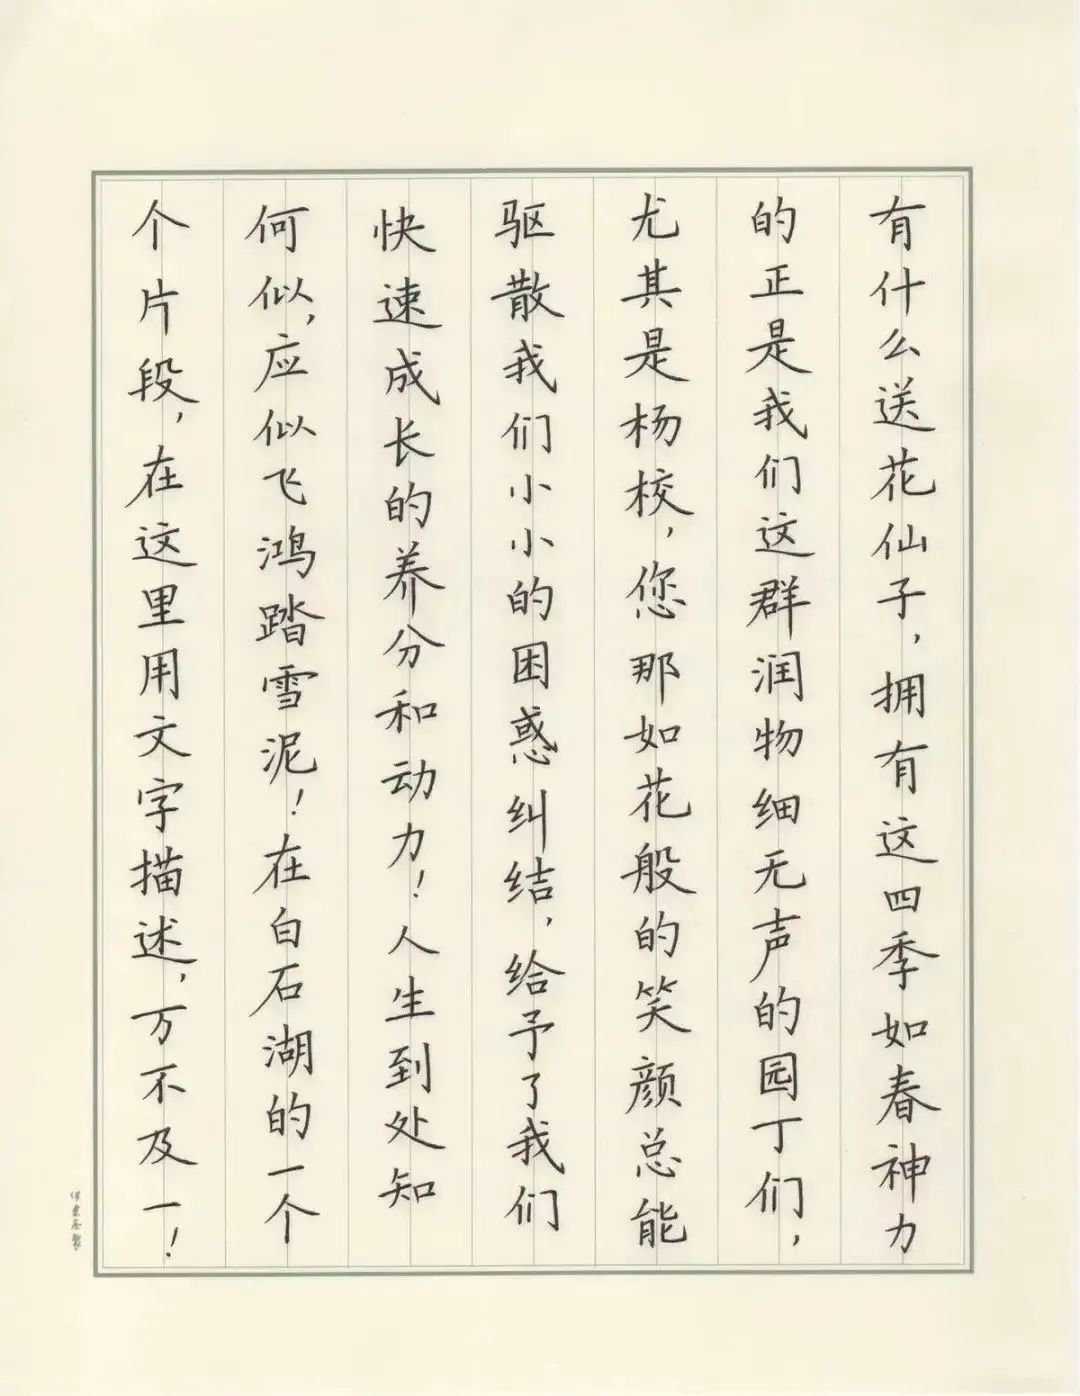 有什么送花仙子，拥有这四季如春神力
的正是我们这群润物细无声的园丁们，
尤其是杨校，您那如花般的笑颜总能
驱散我们小小的困惑纠结，给予了我们
快速成长的养分和动力！人生到处知
何似，应似飞鸿踏雪泥！在白石湖的一个
个片段，在这里用文字描述，万不及一！